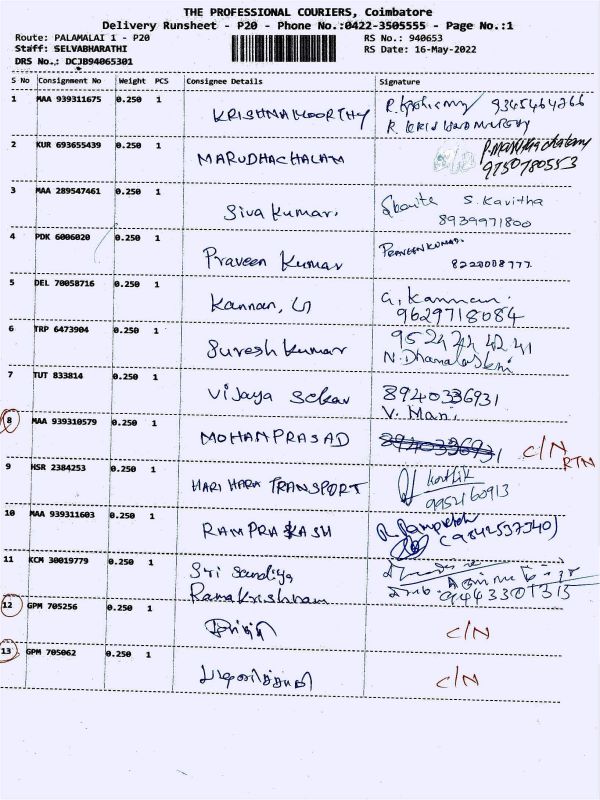 THE PROFESSIONAL COURIERS, Coimbatore
Delivery Runsheet - P20 - Phone No.:0422-3505555 - Page No.:1
Route: PALAMALAI 1 - P20
RS No.: 940653
Staff: SELVABHARATHI
RS Date: 16-May-2022
DRS No.: DCJB94065301
S No Consignment No Weight PCS Consignee Details Signature
1 MAA 939311675 0.250 1 KRISHNAMOORTHY 9345464266
R. KRISHNAMURTHY
2 KUR 693655439 0.250 1 MARUDHACHALAM
9750780553
3 MAA 289547461 0.250 1 Siva Kumar. S. Kavitha
8939971800
4 PDK 6006020 0.250 1 Praveen Kumar PRAVEENKUMAR.
8220008777.
5 DEL 70058716 0.250 1 Kannan, G G. Kannan.
9629718084
6 TRP 6473904 0.250 1 Suresh Kumar 95 24 24 42 41
N. Dhanalakshmi
7 TUT 833814 0.250 1 Vijaya Sekar 8940336931
V. Mani.
8 MAA 939310579 0.250 1 MOHANPRASAD 8940336931 C/N
RTN
9 HSR 2384253 0.250 1 HARI HARA TRANSPORT Karthik
9952460913
10 MAA 939311603 0.250 1 RAMPRAKASH (9842537340)
11 KCM 30019779 0.250 1 Sri Sandiya
Ramakrishnan 9443301313
12 GPM 705256 0.250 1 C/N
13 GPM 705062 0.250 1 C/N